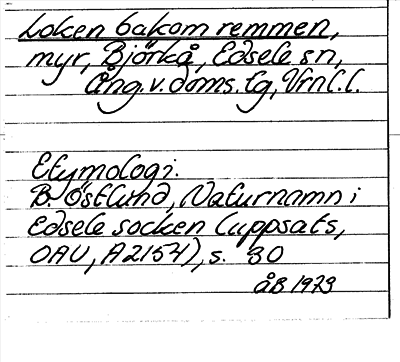 Loken bakom remmen,
myr, Björkå, Edsele sn,
Ång. v. doms. tg, Vrnl. l.
Etymologi.
B. Östlund, Naturnamn i
Edsele socken (uppsats,
OAU, A2154), s. 30
åB 1973